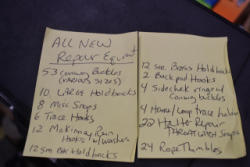 ALL NEW
Repair Equipment
53 Conway Buckles
(various sizes)
10 LARGE Holdbacks
8 Misc Snaps
6 Trace Hooks
12 Rein
Hooks w/ washers
12 Sm Bar Holdbacks
12 Sm. Brass Holdbacks
2 Back pad Hooks
4 Sidecheck ringed
Conway buckles
4 Hame/Loop trace holder
22 Halter Repair
snaps
24 Rope Thimbles